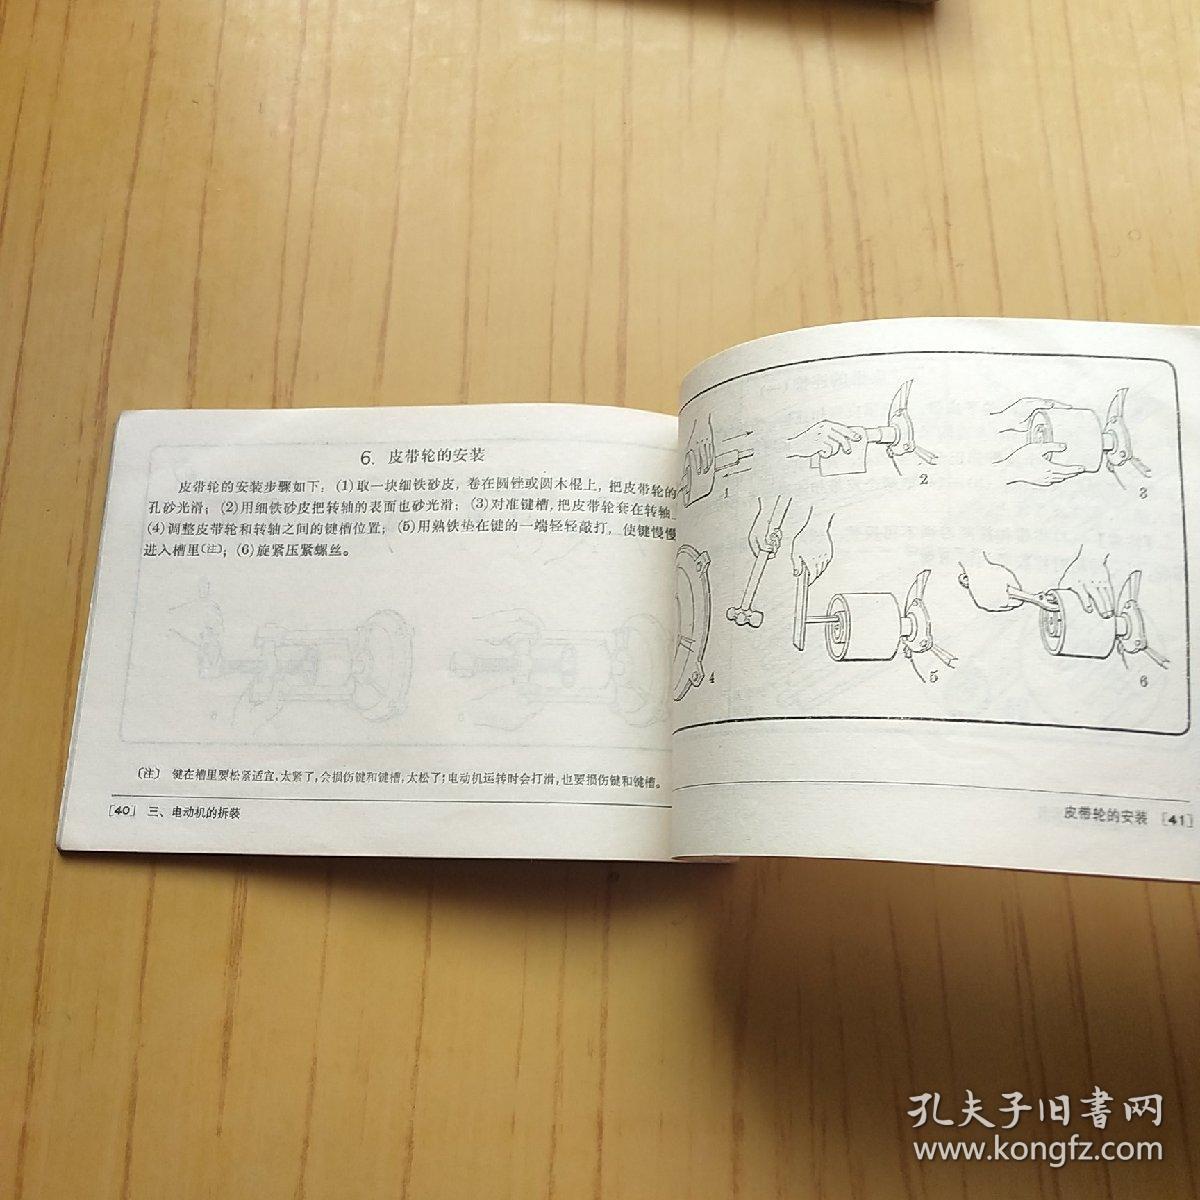 6. 皮带轮的安装
皮带轮的安装步骤如下：(1)取一块细铁砂皮，卷在圆锉或圆木棍上，把皮带轮的
孔砂光滑；(2)用细铁砂皮把转轴的表面也砂光滑；(3)对准键槽，把皮带轮套在转轴
(4)调整皮带轮和转轴之间的键槽位置；(5)用熟铁垫在键的一端轻轻敲打，使键慢慢
进入槽里〔注〕；(6)旋紧压紧螺丝。
〔注〕 键在槽里要松紧适宜，太紧了，会损伤键和键槽，太松了，电动机运转时会打滑，也要损伤键和键槽。
〔40〕 三、电动机的拆装
1
2
3
4
5
6
皮带轮的安装 〔41〕
孔夫子旧書网
www.kongfz.com